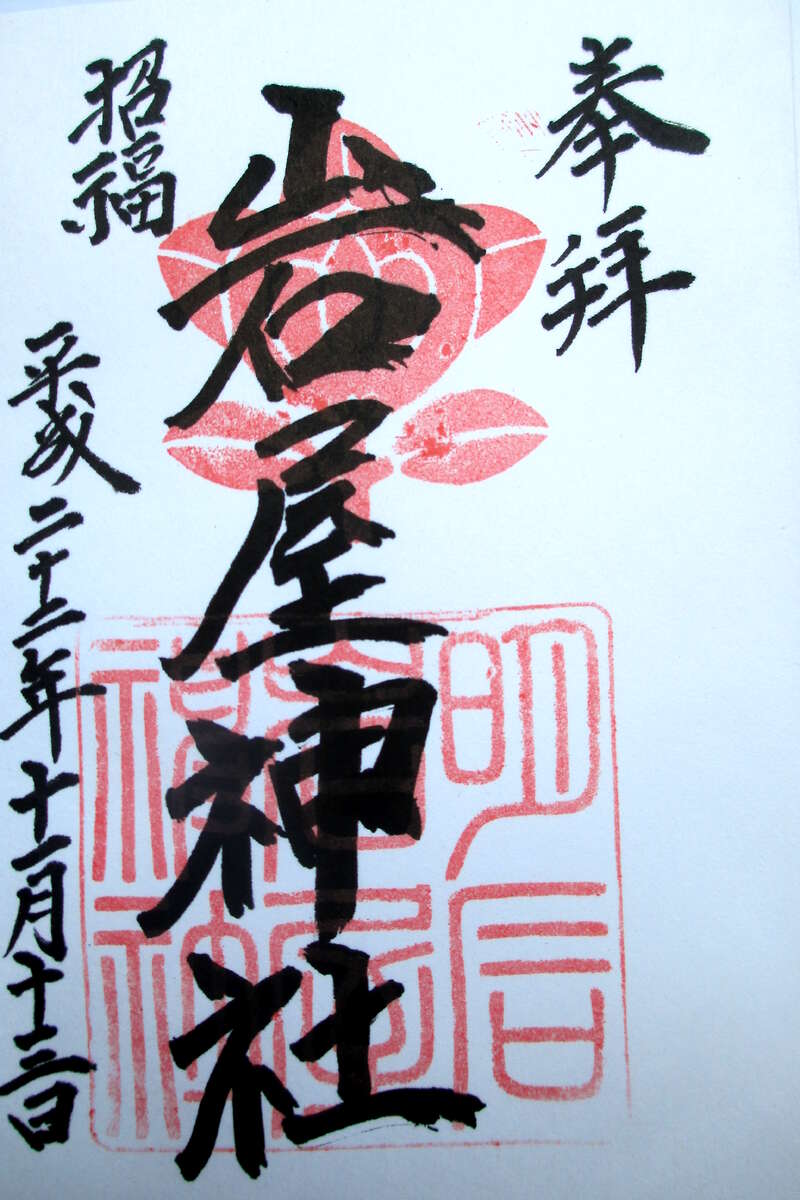 奉拝
岩屋神社
招福
平成二十二年十一月十三日